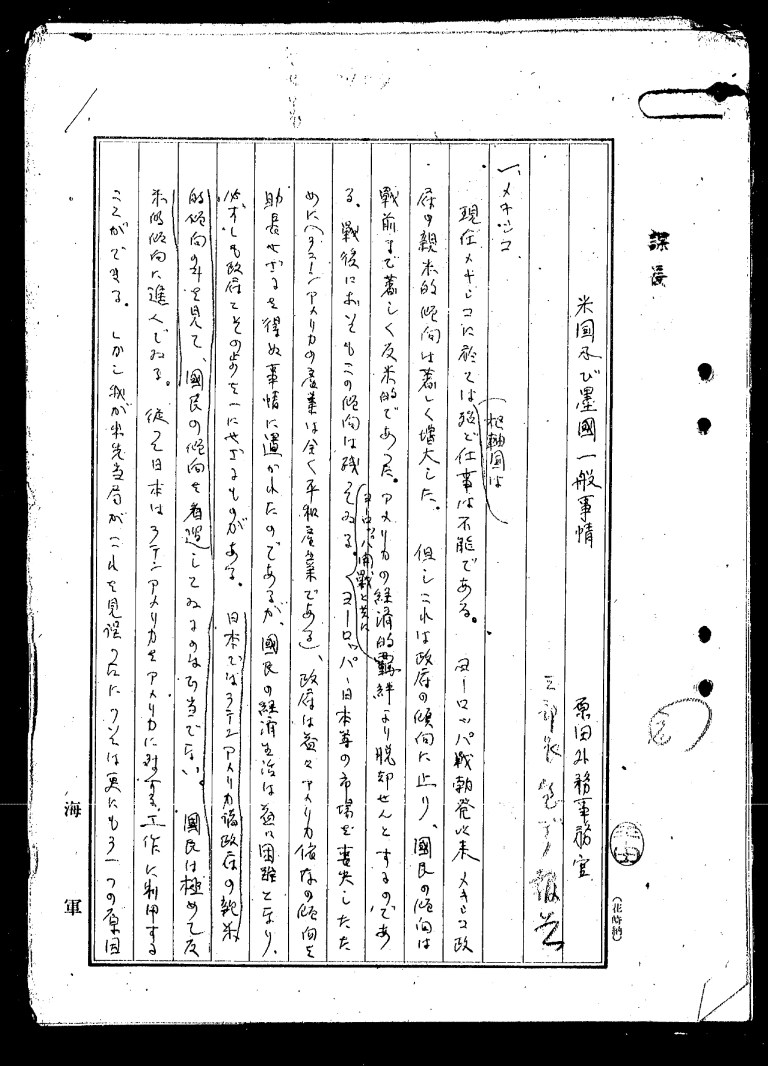 米国及び墨國一般事情
原田外務事務官
報告
一、メキシコ
枢軸国は
現在メキシコに於ては殆ど仕事は不能である。ヨーロッパ戦勃発以来メキシコ政
府の親米的傾向は著しく増大した。但しこれは政府の傾向に止り、國民の傾向は
戦前まで著しく反米的であつた。アメリカの経済的羈絆より脱却せんとするのであ
る。戦後に於てもこの傾向は残つてゐる。ヨーロッパ、日本等の市場を喪失したた
ヨーロッパ開戦と共に
めに(ラテンアメリカの産業は全く平和産業である)、政府は益々アメリカ依存の傾向を
助長せざるを得ぬ事情に置かれたのであるが、國民の経済生活は益々困難となり、
必ずしも政府とその歩を一にせざるものがある。日本ではラテンアメリカ諸政府の親米
的傾向のみを見て、國民の傾向を看過してゐるのは正当でない。國民は極めて反
米的傾向に進んでゐる。従つて日本はラテンアメリカをアメリカに対する工作に利用する
ことができる。しかし我が出先当局がこれを見誤つたについては更にもう一つの原因
海軍